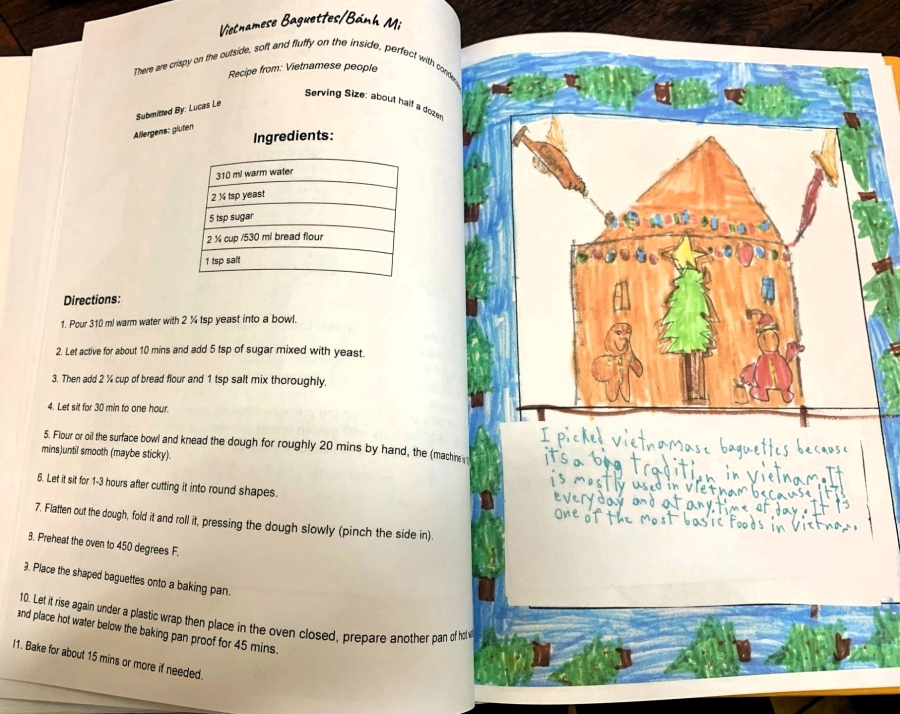 Vietnamese Baguettes/Bánh Mi
There are crispy on the outside, soft and fluffy on the inside, perfect with
Recipe from: Vietnamese people
Submitted By: Lucas Le
Serving Size: about half a dozen
Allergens: gluten
Ingredients:
310 ml warm water
2 ¼ tsp yeast
5 tsp sugar
2 ¼ cup /530 ml bread flour
1 tsp salt
Directions:
1. Pour 310 ml warm water with 2 ¼ tsp yeast into a bowl.
2. Let active for about 10 mins and add 5 tsp of sugar mixed with yeast.
3. Then add 2 ¼ cup of bread flour and 1 tsp salt mix thoroughly.
4. Let sit for 30 min to one hour.
5. Flour or oil the surface bowl and knead the dough for roughly 20 mins by hand, the (machine is
mins)until smooth (maybe sticky).
6. Let it sit for 1-3 hours after cutting it into round shapes.
7. Flatten out the dough, fold it and roll it, pressing the dough slowly (pinch the side in).
8. Preheat the oven to 450 degrees F.
9. Place the shaped baguettes onto a baking pan.
10. Let it rise again under a plastic wrap then place in the oven closed, prepare another pan of hot
and place hot water below the baking pan proof for 45 mins.
11. Bake for about 15 mins or more if needed.
I picked vietnamase baguettes because
it's a big tradition in vietnam. It
is mostly used in vietnam because it's
everyday and at any time of day. It is
one of the most basic foods in vietnam.